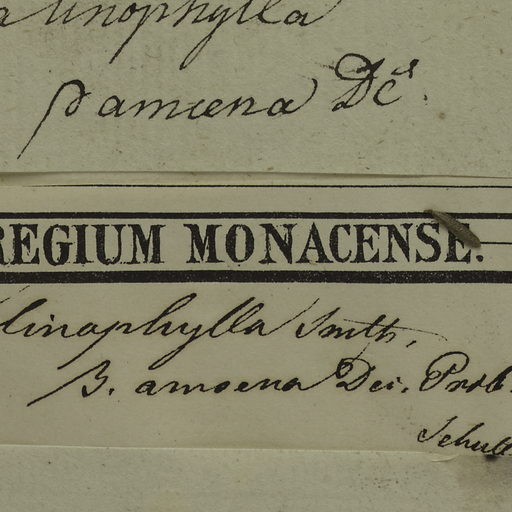 linophylla
β amœna Dc.
REGIUM MONACENSE.
linophylla Smth,
β. amoena Dec. Prod.
Schult